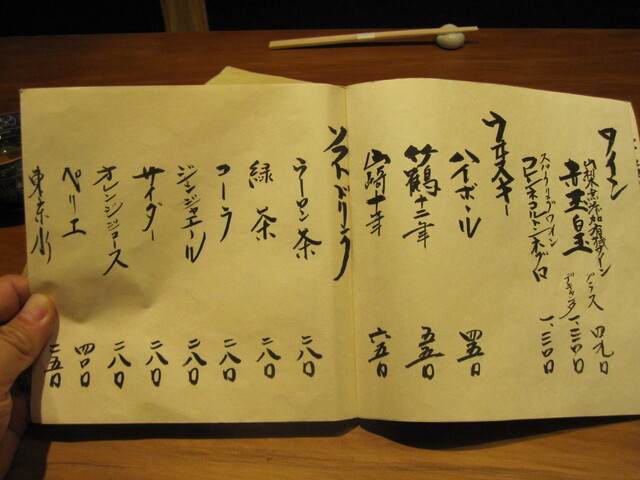 ワイン
山梨無添加有機ワイン グラス 四九〇
デキャンタ 一、三〇〇
スパークリングワイン
フレシネコルドンネグロ 一、三〇〇
ウヰスキー
ハイボール 四五〇
竹鶴十二年 五五〇
山崎十年 六五〇
ソフトドリンク
ウーロン茶 二八〇
緑茶 二八〇
コーラ 二八〇
ジンジャエール 二八〇
サイダー 二八〇
オレンジジュース 二八〇
ペリエ 四〇〇
東京水 二五〇